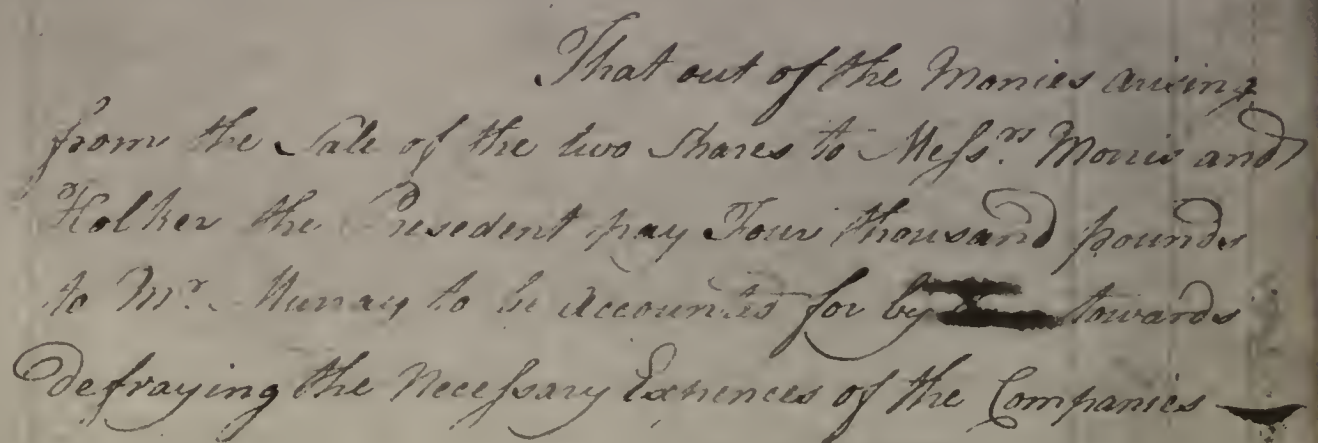 That out of the Monies arising
from the Sale of the two Shares to Mess.rs Morris and
Holker the Presedent pay Four thousand pounds
to Mr. Murray to be Accounted for by towards
defraying the Necessary Expences of the Companies